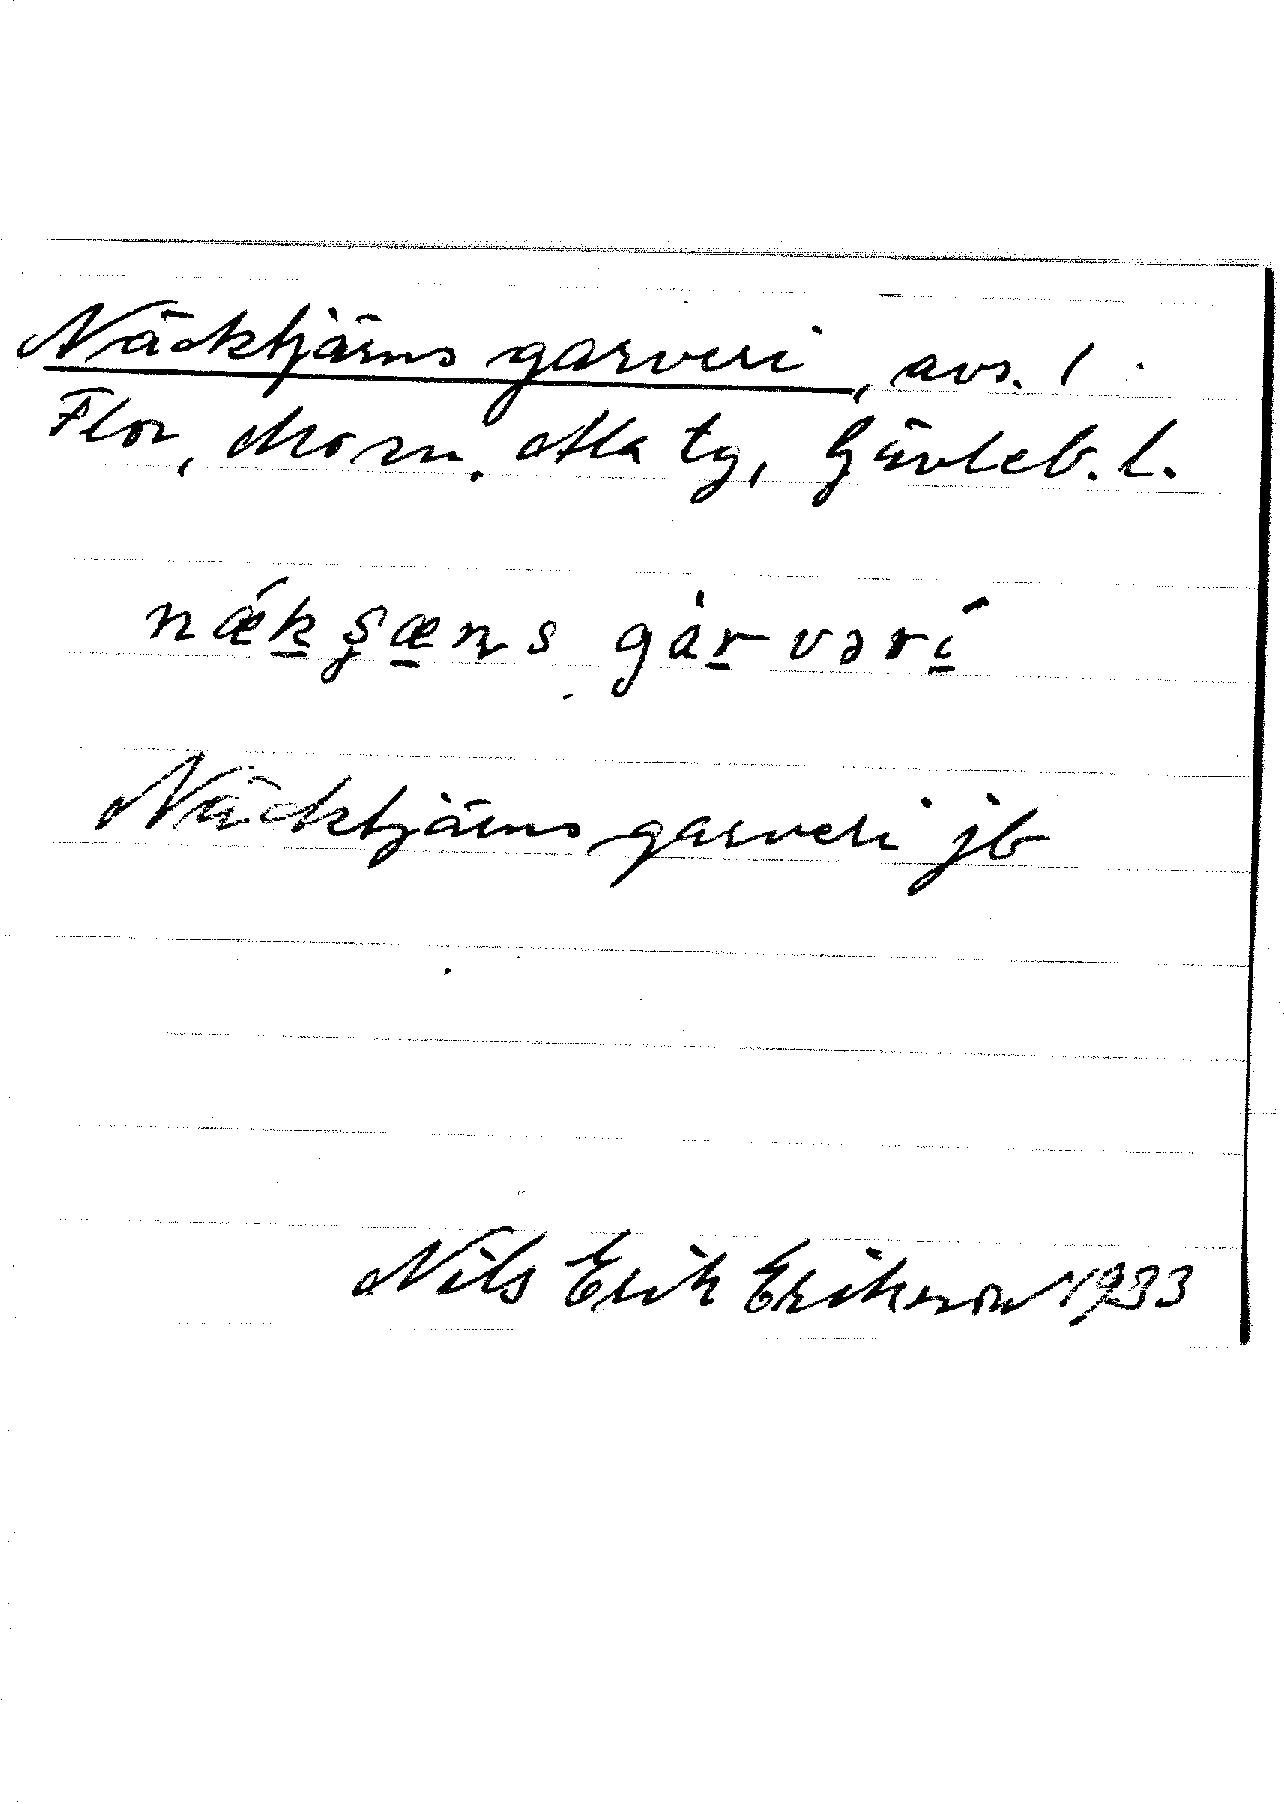 Näcktjärns garveri, avs. 1
Flor, Mo sn, Ala tg, Gävleb. l.
nǽkʂæɳs gàrvərí
Näcktjärns garveri jb
Nils Erik Erikson 1933